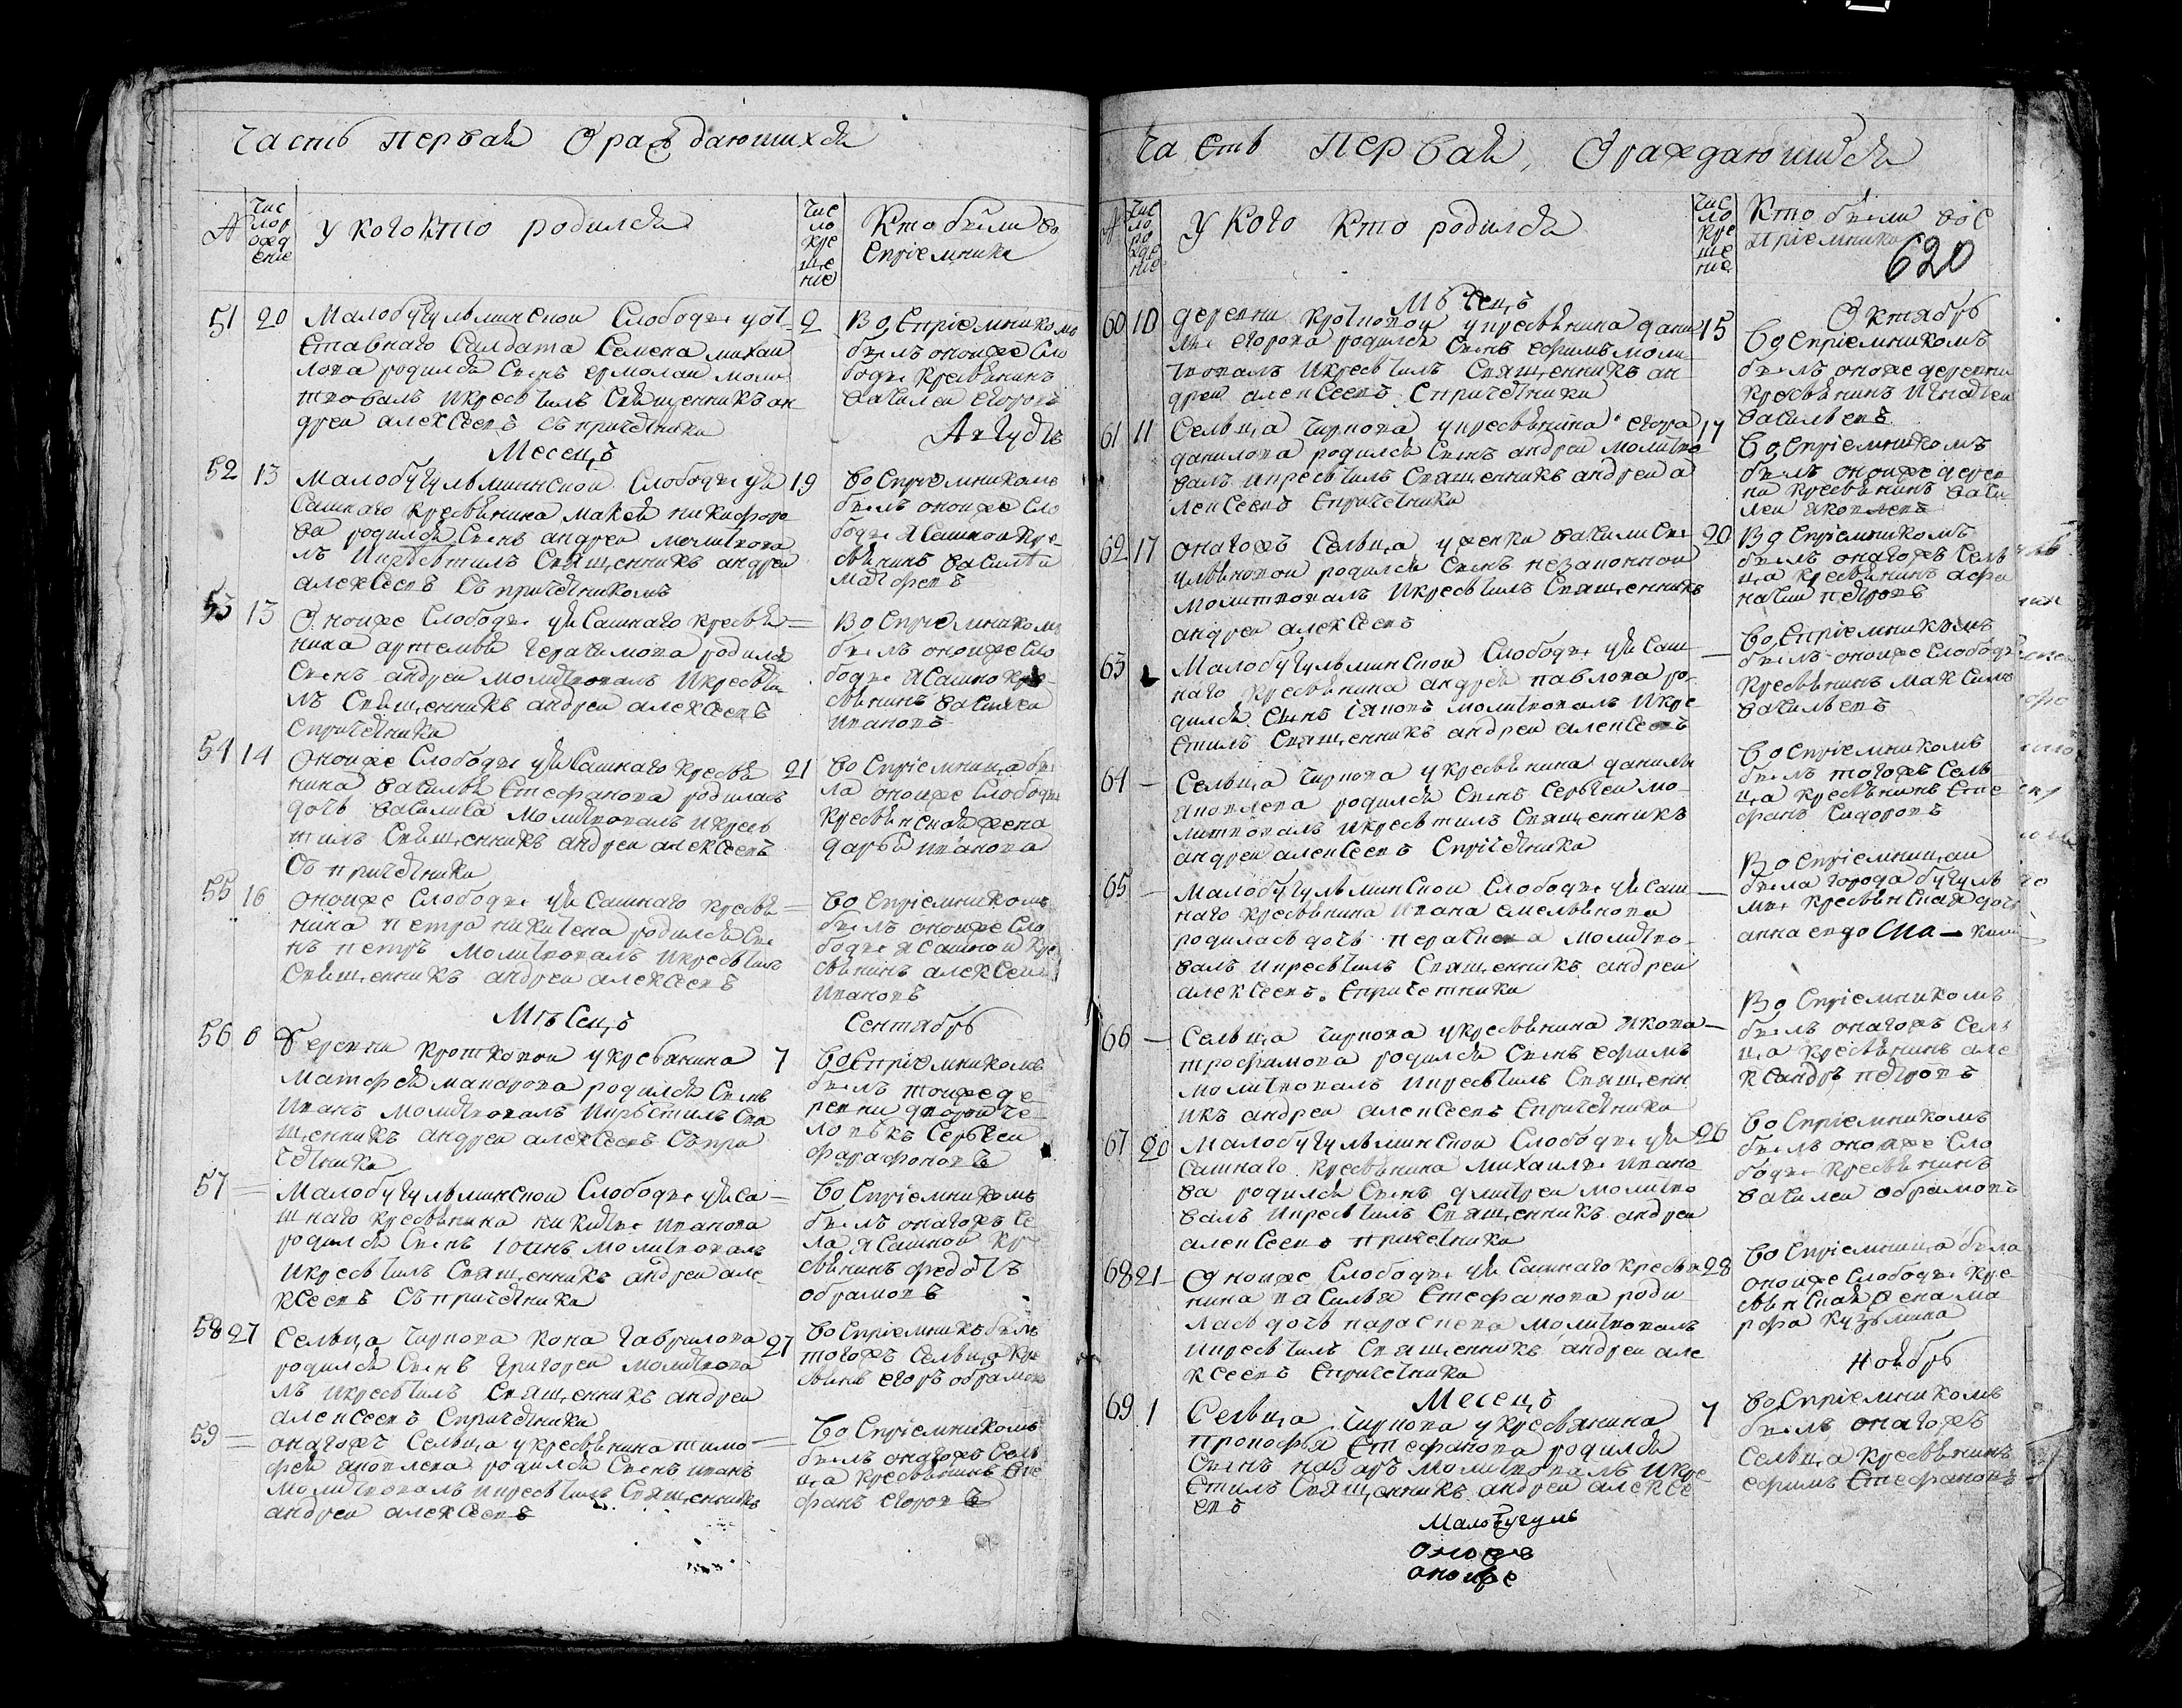 Часть первая О раждающихся
№
Чис
лор
ожд
ение
У кого кто родился
Чис
ло
кре
ще
ние
Кто были во
спрiемники
51 20 Малобугульминской Слободы у от-
ставнаго Салдата Семена михаи
лова родился сынъ ермолаи моли
твовалъ и кресьтилъ священникъ ан
дреи алексеевъ съ причетники
2 Во спрiемникомъ
былъ оной же сло
боды кресьянинъ
василеи егоровъ
Месецъ Авгусtъ
52 13 Малобугульминской Слободы у я
сашнаго кресьянина макея никифоро
ва родился сынъ андреи молитвова
лъ и кресьтилъ священникъ андреи
алексеевъ съ причетникомъ
19 Во спрiемникомъ
былъ оной же сло
боды ясашной кре-
сьянинъ василеи
матфеевъ
53 13 Оной же слободы у ясашнаго кресья
нина артемья герасимова родился
сынъ андреи молитвовалъ и кресьти
лъ священникъ андреи алексеевъ
спричетники
= Во спрiемникомъ
былъ оной же сло
боды ясашно кре-
сьянинъ василеи
ивановъ
54 14 Оной же слободы у ясашнаго кресья
нина василья стефанова родилась
дочь василиса молитвовалъ и кресь
тилъ священникъ андреи алексеевъ
съ причетники
21 Во спрiемница бы
ла оной же слободы
кресьянская жена
дарья иванова
55 16 Оной же слободы у ясашнаго кресья
нина петра никитена родился сы
нъ петръ молитвовалъ и кресьтилъ
священникъ андреи алексеевъ
= Во спрiемникомъ
былъ оной же сло
боды ясашной кре
сьянинъ алексеи
ивановъ
Месецъ Сентябрь
56 6 Деревни кротковои у кресьянина
матфея макарова родился сынъ
иванъ молитвовалъ и крестилъ свя
щенникъ андреи алексеевъ съ при
четники
7 Во спрiемникомъ
былъ той же де
ревни дворои че-
ловекъ сергеи
фарафоновъ
57 = Малобугульминской слободы у яса-
шнаго кресьянина никиты иванова
родился сынъ iоанъ молитвовалъ
и кресьтилъ священникъ андреи але-
ксеевъ съ причетники
= Во спрiемникомъ
былъ онагожъ се
ла ясашной кре
сьянинъ федотъ
обрамовъ
58 27 Сельца чиркова кона гаврилова
родился сынъ григореи молитвова
лъ и кресьтилъ священникъ андреи
алексеевъ спричетники
27 Во спрiемникъ былъ
тогожъ сельца кре
сьянъ егоръ обрамовъ
59 = онагожъ сельца у кресьянина тимо
фея яковлева родился сынъ иванъ
молитвовалъ и кресьтилъ священникъ
андреи алексеевъ
= Во спрiемникомъ
былъ онагожъ сель
ца кресьянинъ сте
фанъ егоровъ
Часть первая, О раждающихся
№
Чис
ло
ро
жде
ние
У кого кто родился
Чис
ло
кре
ще
ние
Кто были вос
прiемники
620
Месецъ Октябрь
60 10 деревни кротковои у кресьянина дани
лы егорова родился сынъ ефимъ моли
твовалъ и кресьтилъ священникъ ан
дреи алексеевъ спричетники
15 Во спрiемникомъ
былъ оной же деревни
кресьянинъ игнатеи
васильевъ
61 11 Сельца чиркова у кресьянина егора
данилова родился сынъ андреи молитво
валъ и кресьтилъ священникъ андреи а
лексеевъ спричетники
17 Во спрiемникомъ
былъ оной же дерев
ни кресьянинъ васи
леи яковлевъ
62 17 онагожъ сельца у женки василисы
ульяновои родился сынъ незаконнои
молитвовалъ и кресьтилъ священникъ
андреи алексеевъ
20 Во спрiемникомъ
былъ онагожъ сель
ца кресьянинъ афа
насии петровъ
63 Малобугульминской слободы у ясаш
наго кресьянина андрея павлова ро-
дился сынъ iяковъ молитвовалъ и кре
стилъ священникъ андреи алексеевъ
— Во спрiемникомъ
былъ оной же слободы
кресьянинъ максимъ
васильевъ
64 — Сельца чиркова у кресьянина данилы
яковлева родился сынъ сергеи мо-
литвовалъ и кресьтилъ священникъ
андреи алексеевъ спричетники
Во спрiемникомъ
былъ тогожъ сель
ца кресьянинъ сте
фанъ сидоровъ
65 — Малобугульминской слободы у ясаш
наго кресьянина ивана емельянова
родилась дочь параскева молитво-
валъ и кресьтилъ священникъ андреи
алексеевъ. спричетники
— Во спрiемницаи
была города бугуль
мы кресьянская дочь
анна евдо
66 — Сельца чиркова у кресьянина якова
трофимова родился сынъ ефимъ
молитвовалъ и кресьтилъ священн
икъ андреи алексеевъ спричетники
— Во спрiемникомъ
былъ онагожъ сель
ца кресьянинъ але
ксандръ петровъ
67 20 Малобугульминской слободы у я
сашнаго кресьянина михаилы ивано
ва родился сынъ дмитреи молитво
валъ и кресьтилъ священникъ андреи
алексеевъ причетники
26 Во спрiемникомъ
былъ оной же сло
боды кресьянинъ
василеи обрамовъ
68 21 Оной же слободы у ясашнаго кресья
нина василья стефанова роди
лась дочь параскева молитвовалъ
и кресьтилъ священникъ андреи але
ксеевъ спричетники
28 Во спрiемница была
оной же слободы кре
сьянская жена ма
рфа кузьмина
Месецъ Ноябрь
69 1 Сельца чиркова у кресьянина
прокофья стефанова родился
сынъ назаръ молитвовалъ и кре
стилъ священникъ андреи алексе
евъ
7 Во спрiемникомъ
былъ онагожъ
сельца кресьянинъ
ефимъ стефановъ
Малобугуль
оной же